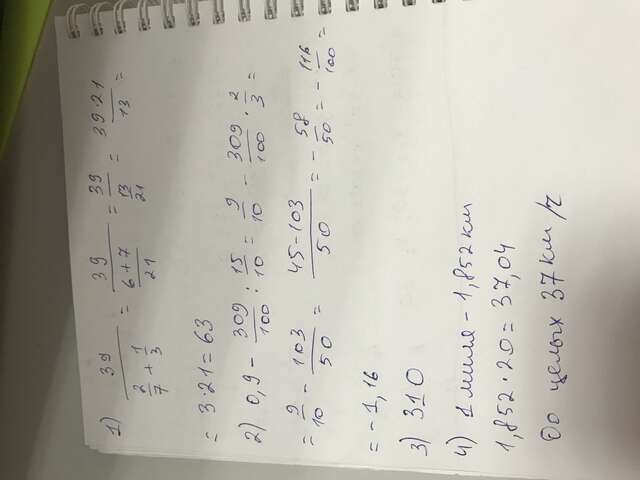 1) 39/(2/7 + 1/3) = 39/((6+7)/21) = 39/(13/21) = 39·21/13 =
= 3·21 = 63
2) 0,9 - 309/100 : 15/10 = 9/10 - 309/100 · 2/3 =
= 9/10 - 103/50 = (45-103)/50 = - 58/50 = - 116/100 =
= -1,16
3) 310
4) 1 миля - 1,852 км
1,852·20 = 37,04
До целых 37 км/ч